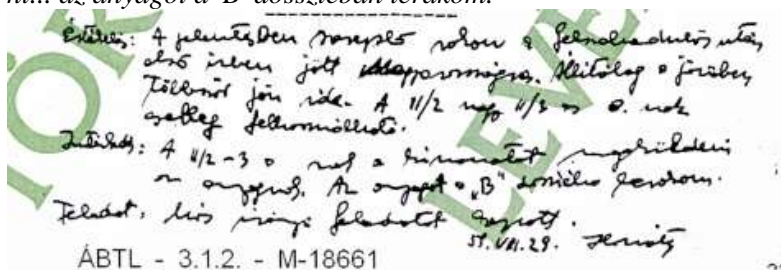 ni... az anyagot a "B" dossziéban lerakom.
Értékelés: A jelentésben szereplő rokon a felszabadulás után
első ízben jött Magyarországra. Állítólag a jövőben
többször jön ide. A II/2 vagy II/3 o. nak
esetleg felhasználható.
Intézkedés: A II/2-3 o nak a kivonatot megküldeni
az anyagról. Az anyagot a "B" dossziéba lerakom.
Feladat: kapott.
ÁBTL - 3.1.2. - M-18661